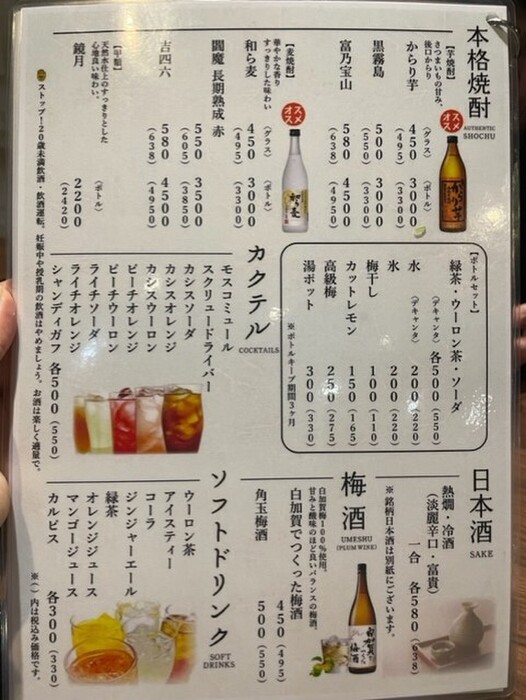 本格焼酎
AUTHENTIC
SHOCHU
【芋焼酎】
さつまいもの甘み、
後口からり
からり芋
(グラス) 450 (495)
(ボトル) 3000 (3300)
黒霧島
500 (550)
3000 (3300)
富乃宝山
580 (638)
4500 (4950)
オススメ
【麦焼酎】
華やかな香り
すっきりした味わい
和ら麦
(グラス) 450 (495)
(ボトル) 3000 (3300)
閻魔 長期熟成 赤
550 (605)
3500 (3850)
吉四六
580 (638)
4500 (4950)
オススメ
【甲類】
天然水仕上のすっきりとした
心地良い味わい。
鏡月
(ボトル) 2200 (2420)
【ボトルセット】
緑茶・ウーロン茶・ソーダ
(デキャンタ) 各500 (550)
水 (デキャンタ) 200 (220)
氷 200 (220)
梅干し 100 (110)
カットレモン 150 (165)
高級梅 250 (275)
湯ポット 300 (330)
※ボトルキープ期間3ヶ月
カクテル
COCKTAILS
モスコミュール
スクリュードライバー
カシスソーダ
カシスオレンジ
カシスウーロン
ピーチオレンジ
ピーチウーロン
ライチソーダ
ライチオレンジ
シャンディガフ
各500 (550)
日本酒
SAKE
熱燗・冷酒
(淡麗辛口・富貴)
一合 各580 (638)
※銘柄日本酒は別紙にございます。
梅酒
UMESHU
(PLUM WINE)
白加賀梅100%使用。
甘みと酸味のほど良いバランスの梅酒。
白加賀でつくった梅酒
450 (495)
角玉梅酒
500 (550)
ソフトドリンク
SOFT
DRINKS
ウーロン茶
アイスティー
コーラ
ジンジャーエール
緑茶
オレンジジュース
マンゴージュース
カルピス
各300 (330)
※( )内は税込み価格です。
ストップ!20歳未満飲酒・飲酒運転。妊娠中や授乳期の飲酒はやめましょう。お酒は楽しく適量で。